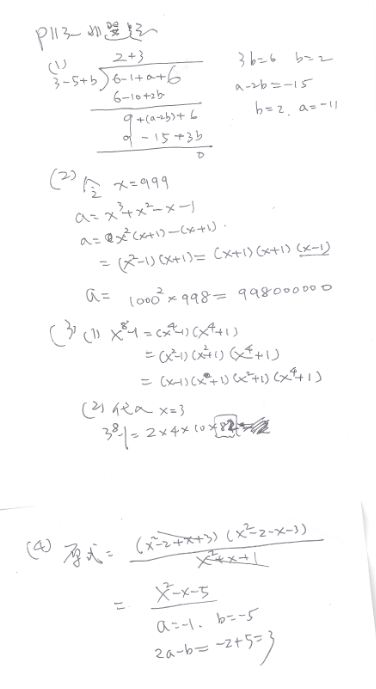 P113-
(1) 2+3
3-5+b) 6-1+a+6 3b=6 b=2
6-10+2b a-2b=-15
9+(a-2b)+6 b=2, a=-11
9 -15+3b
0
(2) 令 x=999
a=x³+x²-x-1
a=x²(x+1)-(x+1)
=(x²-1)(x+1)=(x+1)(x+1)(x-1)
a= 1000²×998=998000000
(3) (1) x⁸-1=(x⁴-1)(x⁴+1)
=(x²-1)(x²+1)(x⁴+1)
=(x-1)(x+1)(x²+1)(x⁴+1)
(2) 代入 x=3
3⁸-1=2×4×10×82
(4) 原式= (x²-2+x+3)(x²-2-x-3)
x²+x+1
= x²-x-5
a=-1. b=-5
2a-b=-2+5=3